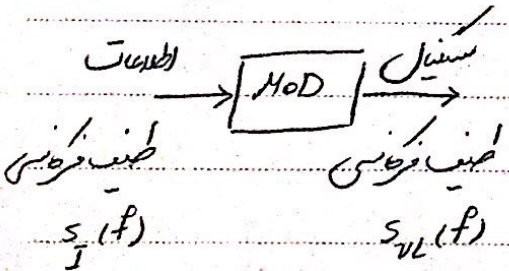 اطلاعات MOD سیگنال
طیف فرکانسی طیف فرکانسی
S_I(f) S_VL(f)